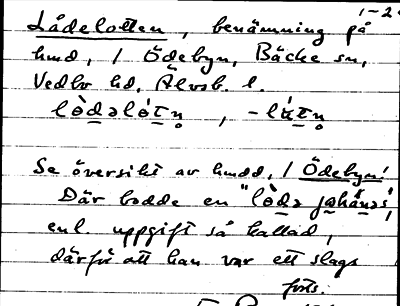 1-20
Lådelotten, benämning på
hmd, / Ödebyn, Bäcke sn,
Vedbo hd, Älvsb. l.
lò̀dəlótn̥, -látn̥
Se översikt av hmdd, / Ödebyn!
Där bodde en "lò̀də jahánəs",
enl. uppgift så kallad,
därför att han var ett slags
forts.